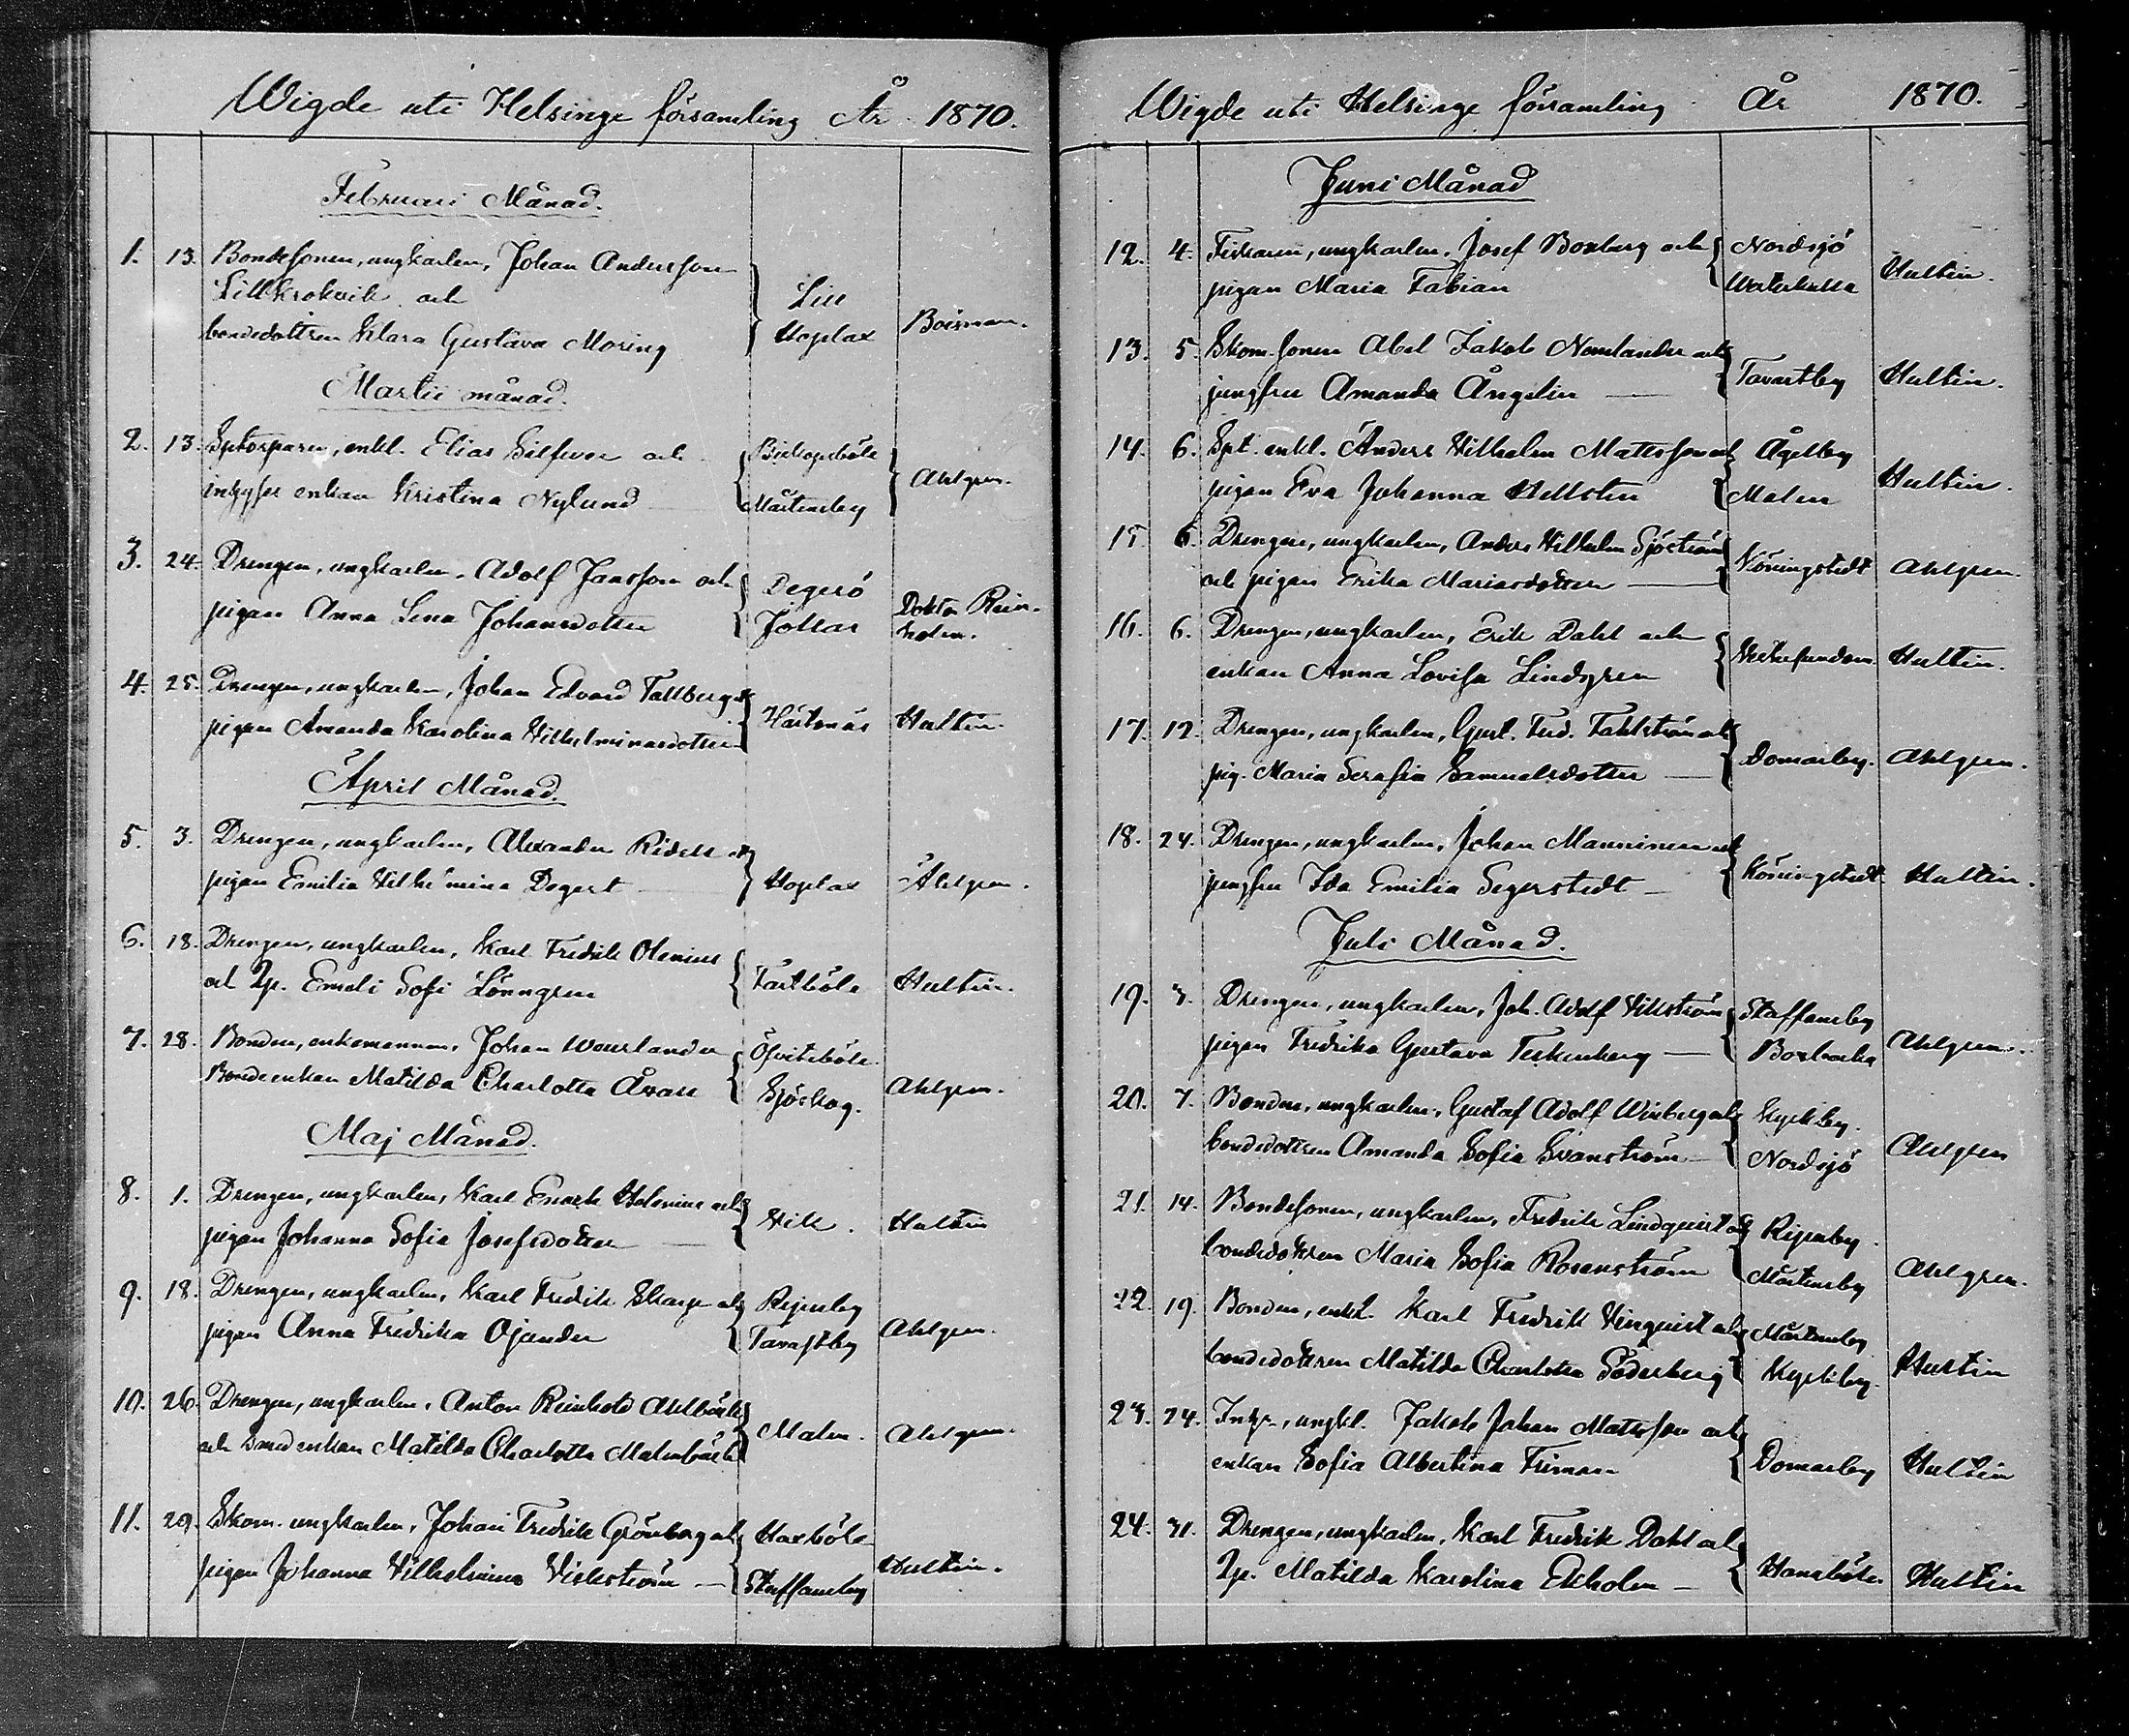 Wigde uti Helsinge församling År 1870.
Februari Månad.
1. 13. Bondesonen, ungkarlen, Johan Andersson
Lillkrokvik och Lill
bondedottren Klara Gustava Moring Hoplax Boisman.
Martii månad.
2. 13. Sptorparen, enkl. Elias Silfver och Biskopsböle
inhyses enkan Kristina Nylund Mårtensby Ahlgren.
3. 24. Drengen, ungkarlen, Adolf Jansson och Degerö
pigan Anna Lena Johansdotter Jollas Doktor Rein-
holm.
4. 25. Drengen, ungkarlen, Johan Edvard Tallberg och
pigan Amanda Karolina Vilhelminasdotter Hertonäs Hultin.
April Månad.
5. 3. Drengen, ungkarlen, Alexander Ridell och
pigan Emilia Vilhelmina Degert Hoplax Ahlgren.
6. 18. Drengen, ungkarlen, Karl Fredrik Olenius
och Qp. Emeli Sofi Lönngren Fastböle Hultin.
7. 28. Bonden, enkemannen, Johan Weurlander Öfvitsböle.
Bondeenkan Matilda Charlotta Åvall Sjöskog. Ahlgren.
Maj Månad.
8. 1. Drengen, ungkarlen, Karl Enock Helenius och
pigan Johanna Sofia Josefsdotter Vik. Hultin
9. 18. Drengen, ungkarlen, Karl Fredrik Skarp och Ripuby
pigan Anna Fredrika Ojander Tavastby Ahlgren.
10. 26. Drengen, ungkarlen, Anton Reinhold Ahlbäck
och smedenkan Matilda Charlotta Malmbäck Malm. Ahlgren.
11. 29. Skom. ungkarlen, Johan Fredrik Grönberg och Haxböle
pigan Johanna Vilhelmina Vickström Staffansby Hultin.
Wigde uti Helsinge församling År 1870.
Juni Månad
12. 4. Fiskaren, ungkarlen, Josef Boxberg och Nordsjö
pigan Maria Fabian Westerkulla Hultin.
13. 5. Skom. sonen Abel Jakob Nomlander och
jungfru Amanda Ångelin Tavastby Hultin.
14. 6. Spt. enkl. Anders Vilhelm Mattsson och Ågelby
pigan Eva Johanna Hellsten Malm Hultin.
15. 6. Drengen, ungkarlen, Anders Vilhelm Sjöström
och pigan Erika Mariasdotter Köningstedt Ahlgren.
16. 6. Drengen, ungkarlen, Erik Dahl och
enkan Anna Lovisa Lindgren Hultin.
17. 12. Drengen, ungkarlen, Gust. Ferd. Fahlström och
pig. Maria Serafia Samuelsdotter Domarby. Ahlgren.
18. 24. Drengen, ungkarlen, Johan Manninen och
jungfru Ida Emilia Segerstedt Köningstedt Hultin.
Juli Månad.
19. 3. Drengen, ungkarlen, Joh. Adolf Vikström Staffansby
pigan Fredrika Gustava Teckenberg Boxbacka Ahlgren.
20. 7. Bonden, ungkarlen, Gustaf Adolf Winberg och Kyrkby.
bondedottren Amanda Sofia Svanström Nordsjö Ahlgren
21. 14. Bondesonen, ungkarlen, Fredrik Lindquist och Ripuby.
bondedottren Maria Sofia Rosenström Mårtensby Ahlgren.
22. 19. Bonden, enkl. Karl Fredrik Vinquist och Mårtensby
bondedottren Matilda Charlotta Söderberg Kyrkby. Hultin
23. 24. Inhys., ungkl. Jakob Johan Mattsson och
enkan Sofia Albertina Friman Domarby Hultin
24. 31. Drengen, ungkarlen, Karl Fredrik Dahl och
Qp. Matilda Karolina Ekholm Hanaböle. Hultin